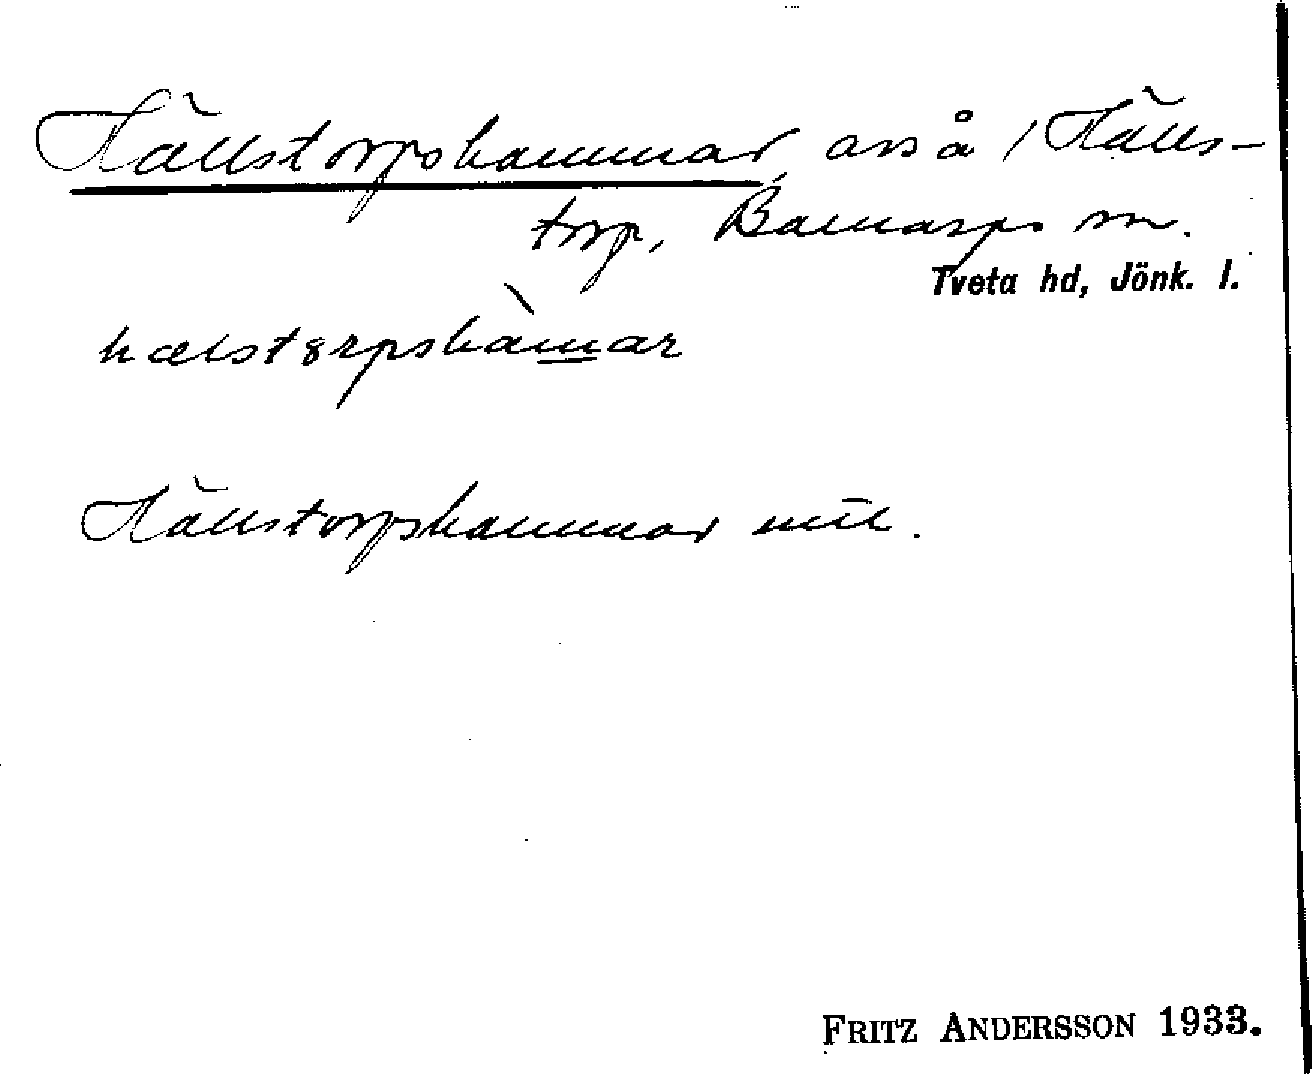 Hällstorpshammar, avs å 1 Hälls-
torp, Barnarps sn.
Tveta hd, Jönk. l.
hælstorpshàmar
Hällstorpshammar
FRITZ ANDERSSON 1933.